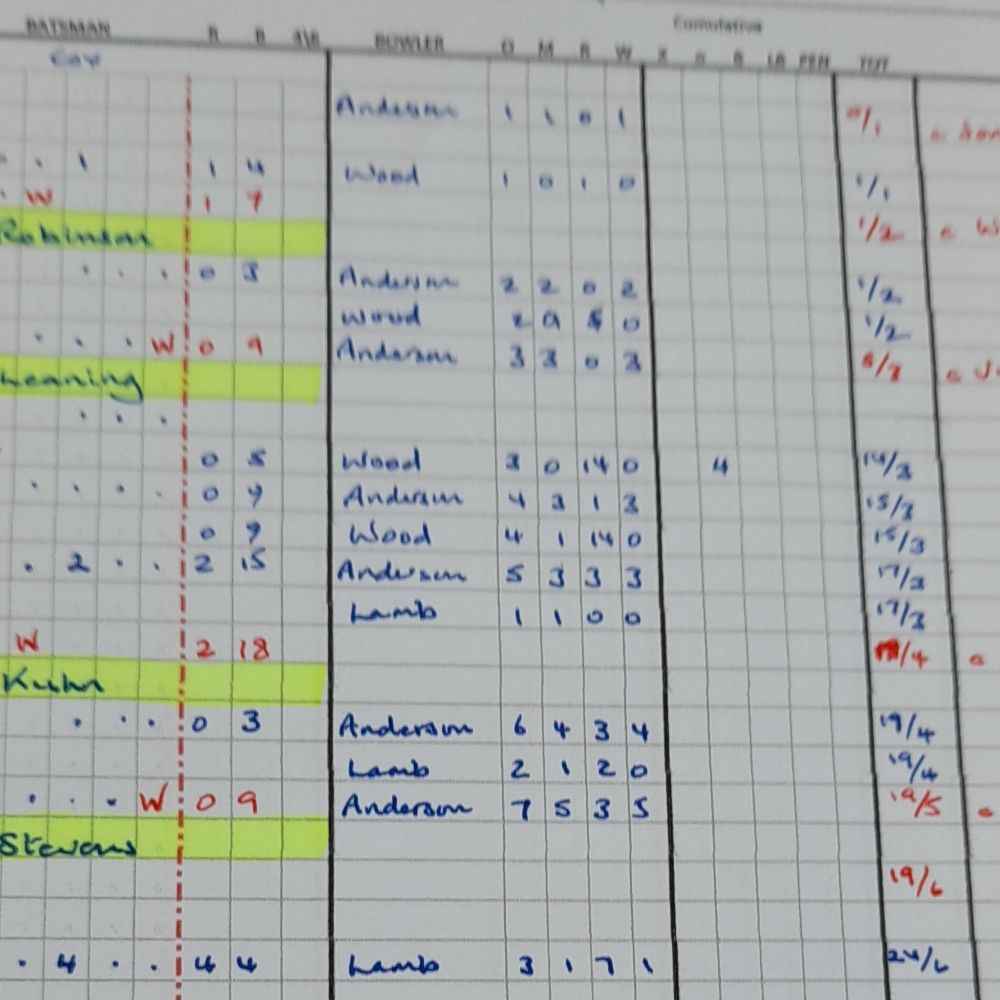 BATSMAN R B 4\6 BOWLER O M R W Cumulative LB PEN TOT
Cox
Anderson 1 1 0 1 0/1
. . 1 1 4 Wood 1 0 1 0 1/1
. W 1 7 1/2 c
Robinson
. . . 0 3 Anderson 2 2 0 2 1/2
Wood 2 0 1/2
. . . W 0 9 Anderson 3 3 0 3 c
Leaning
. . .
0 5 Wood 3 0 14 0 4 14/3
. . . . 0 9 Anderson 4 3 1 3 15/3
0 9 Wood 4 1 14 0 15/3
. 2 . . 2 15 Anderson 5 3 3 3 17/3
Lamb 1 1 0 0 17/3
W 2 18 /4 c
Kuhn
. . . 0 3 Anderson 6 4 3 4 19/4
Lamb 2 1 2 0 19/4
. . . W 0 9 Anderson 7 5 3 5 19/5
Stevens
19/6
. 4 . . 4 4 Lamb 3 1 7 1 24/6